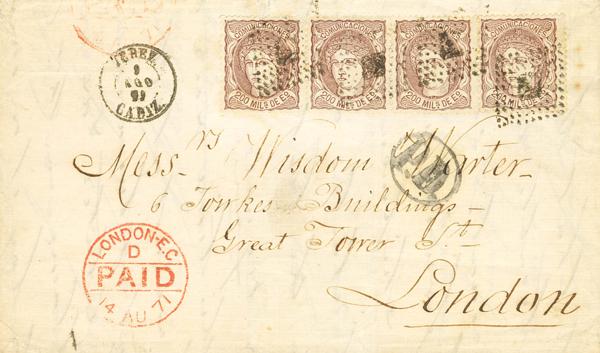 COMUNICACIONES COMUNICACIONES COMUNICACIONES COMUNICACIONES
200 MILS DE E9 200 MILS DE E9 200 MILS DE E9 200 MILS DE
JEREZ
9
AGO
CADIZ.
P.D.
Messrs Wisdom Warter
6 Towkes Buildings
Great Tower St.
London
LONDON-E.C
D
PAID
14 AU 71